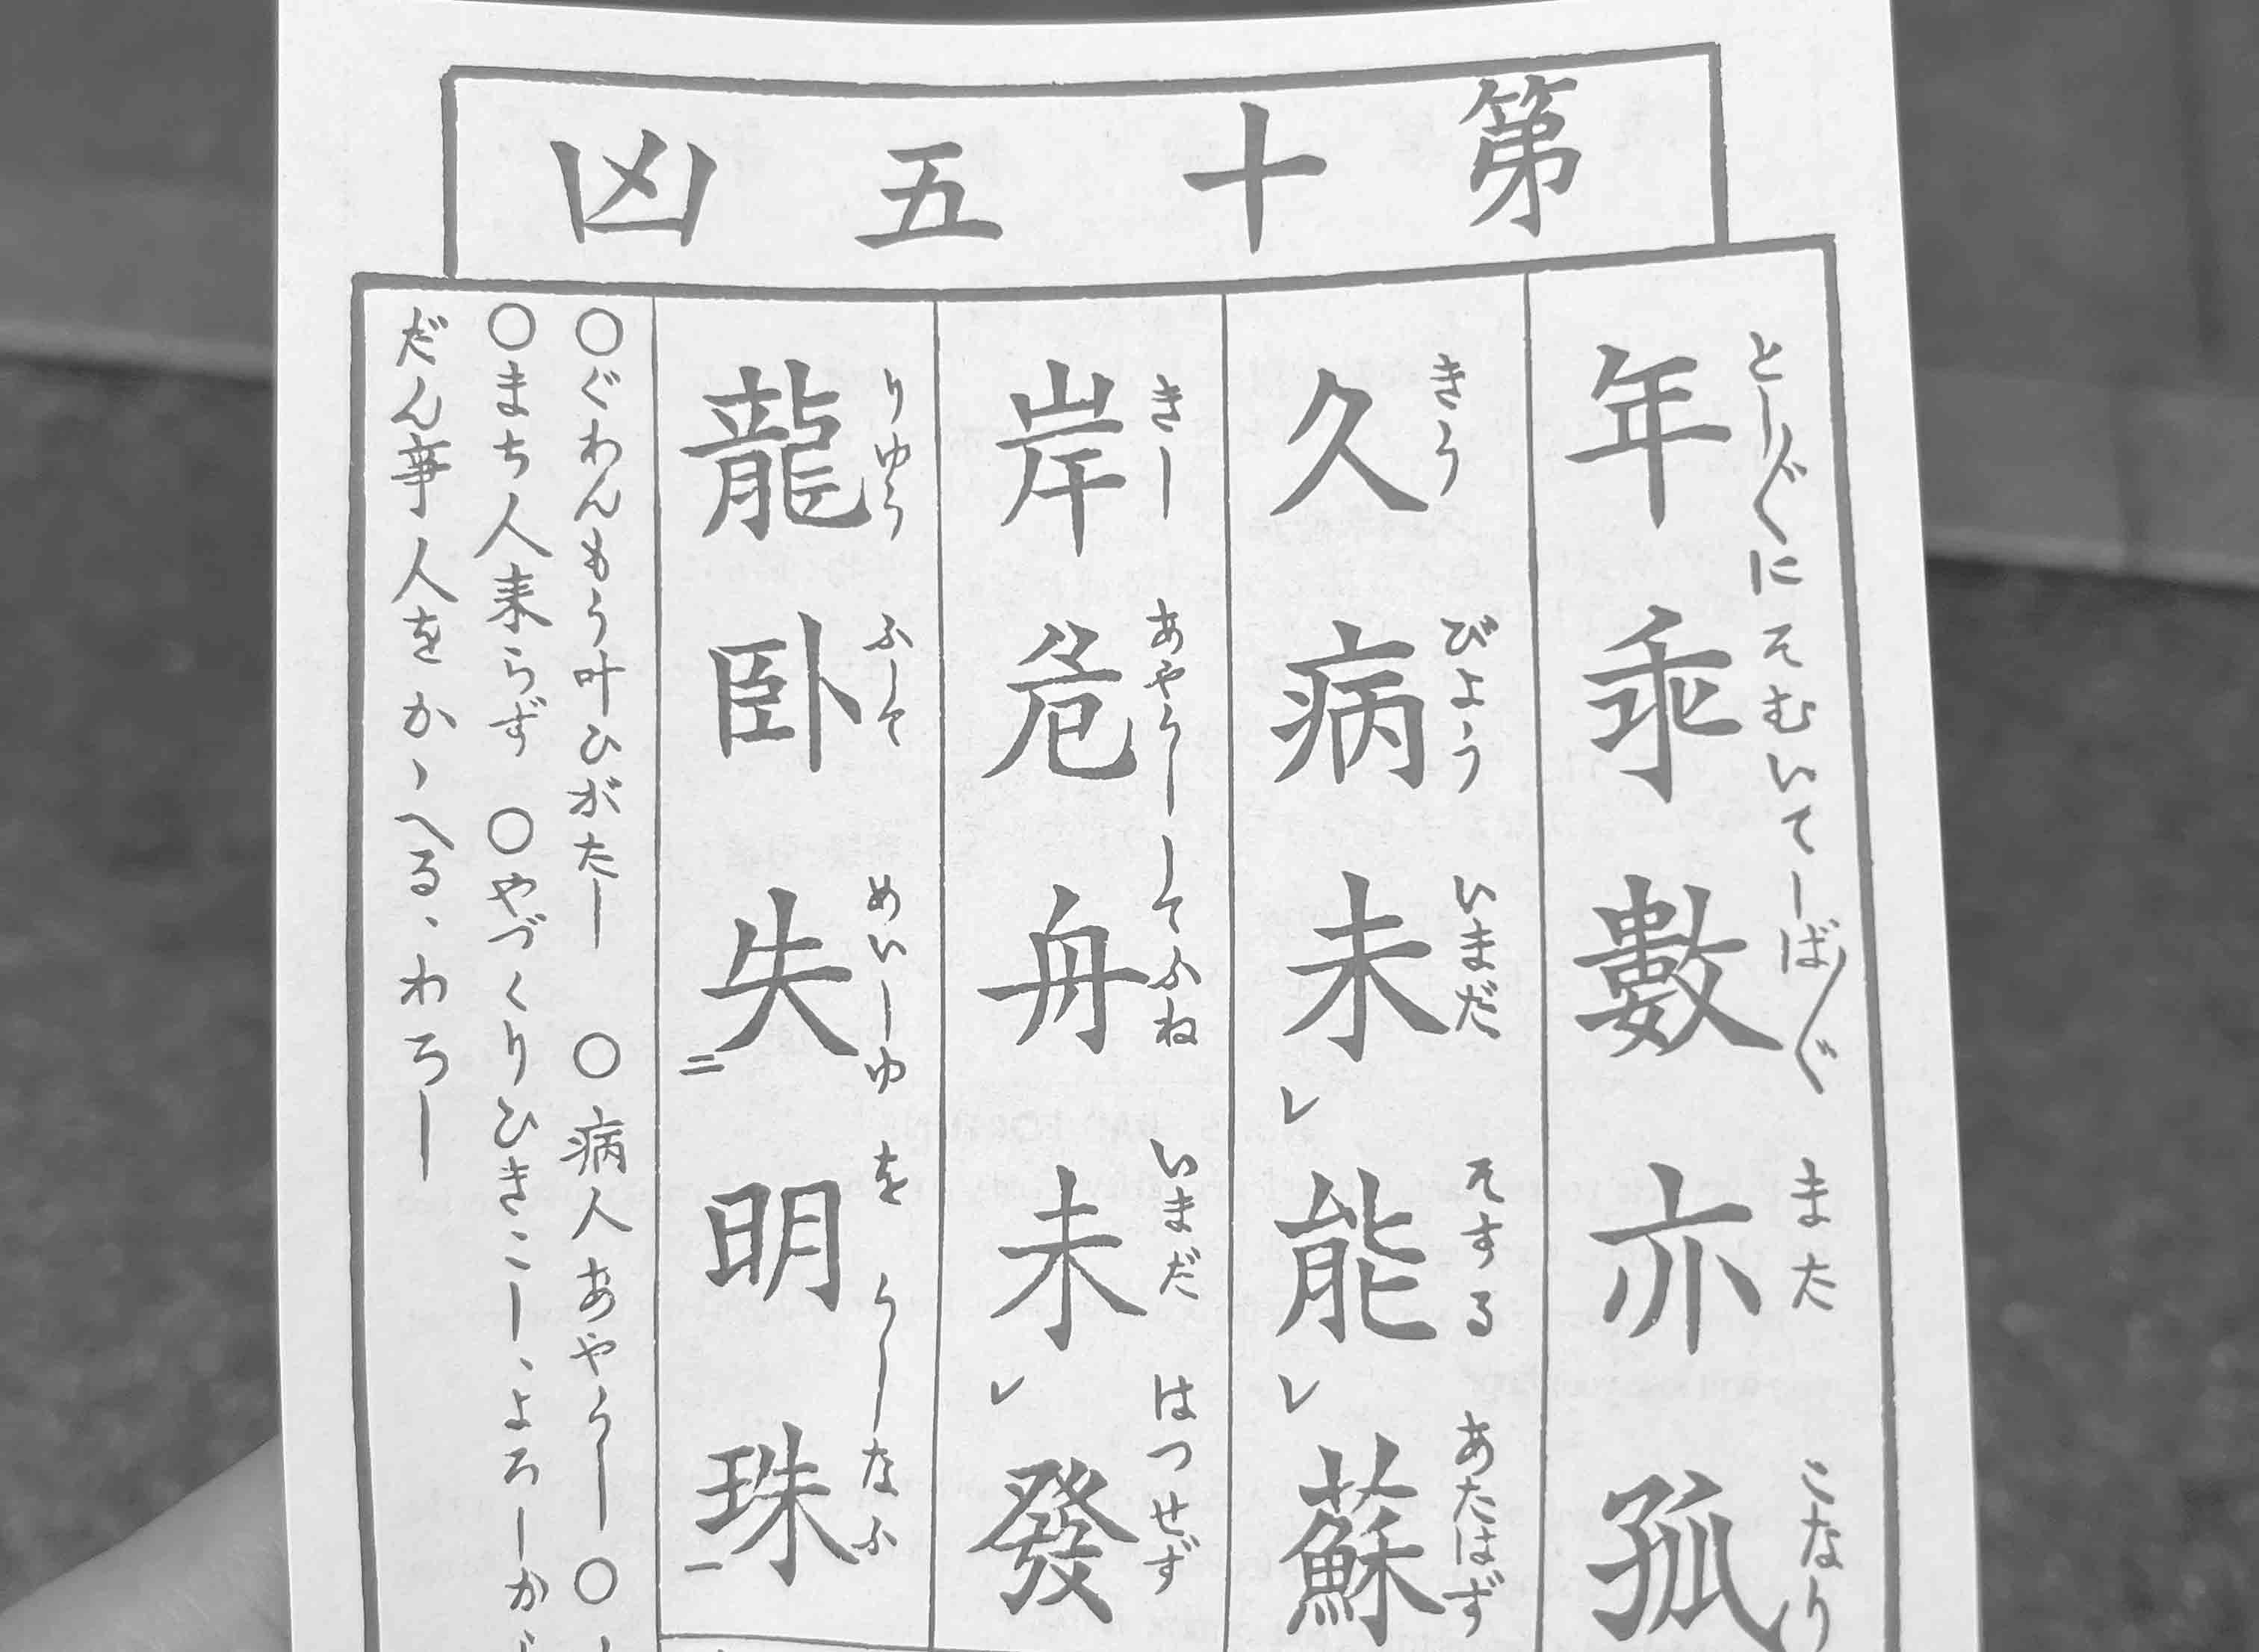 第十五凶
年乖數亦孤
としぐにそむいてしばしばまたこなり
久病未レ能レ蘇
きうびよういまだそするあたはず
岸危舟未レ發
きしあやうしてふねいまだはつせず
龍卧失二明珠一
りゆうふしてめいしゆをうしなふ
○ぐわんもう叶ひがたし ○病人あやうし ○
○まち人来らず ○やづくりひきこし、よろしか
だん事人をかゝへる、わろし